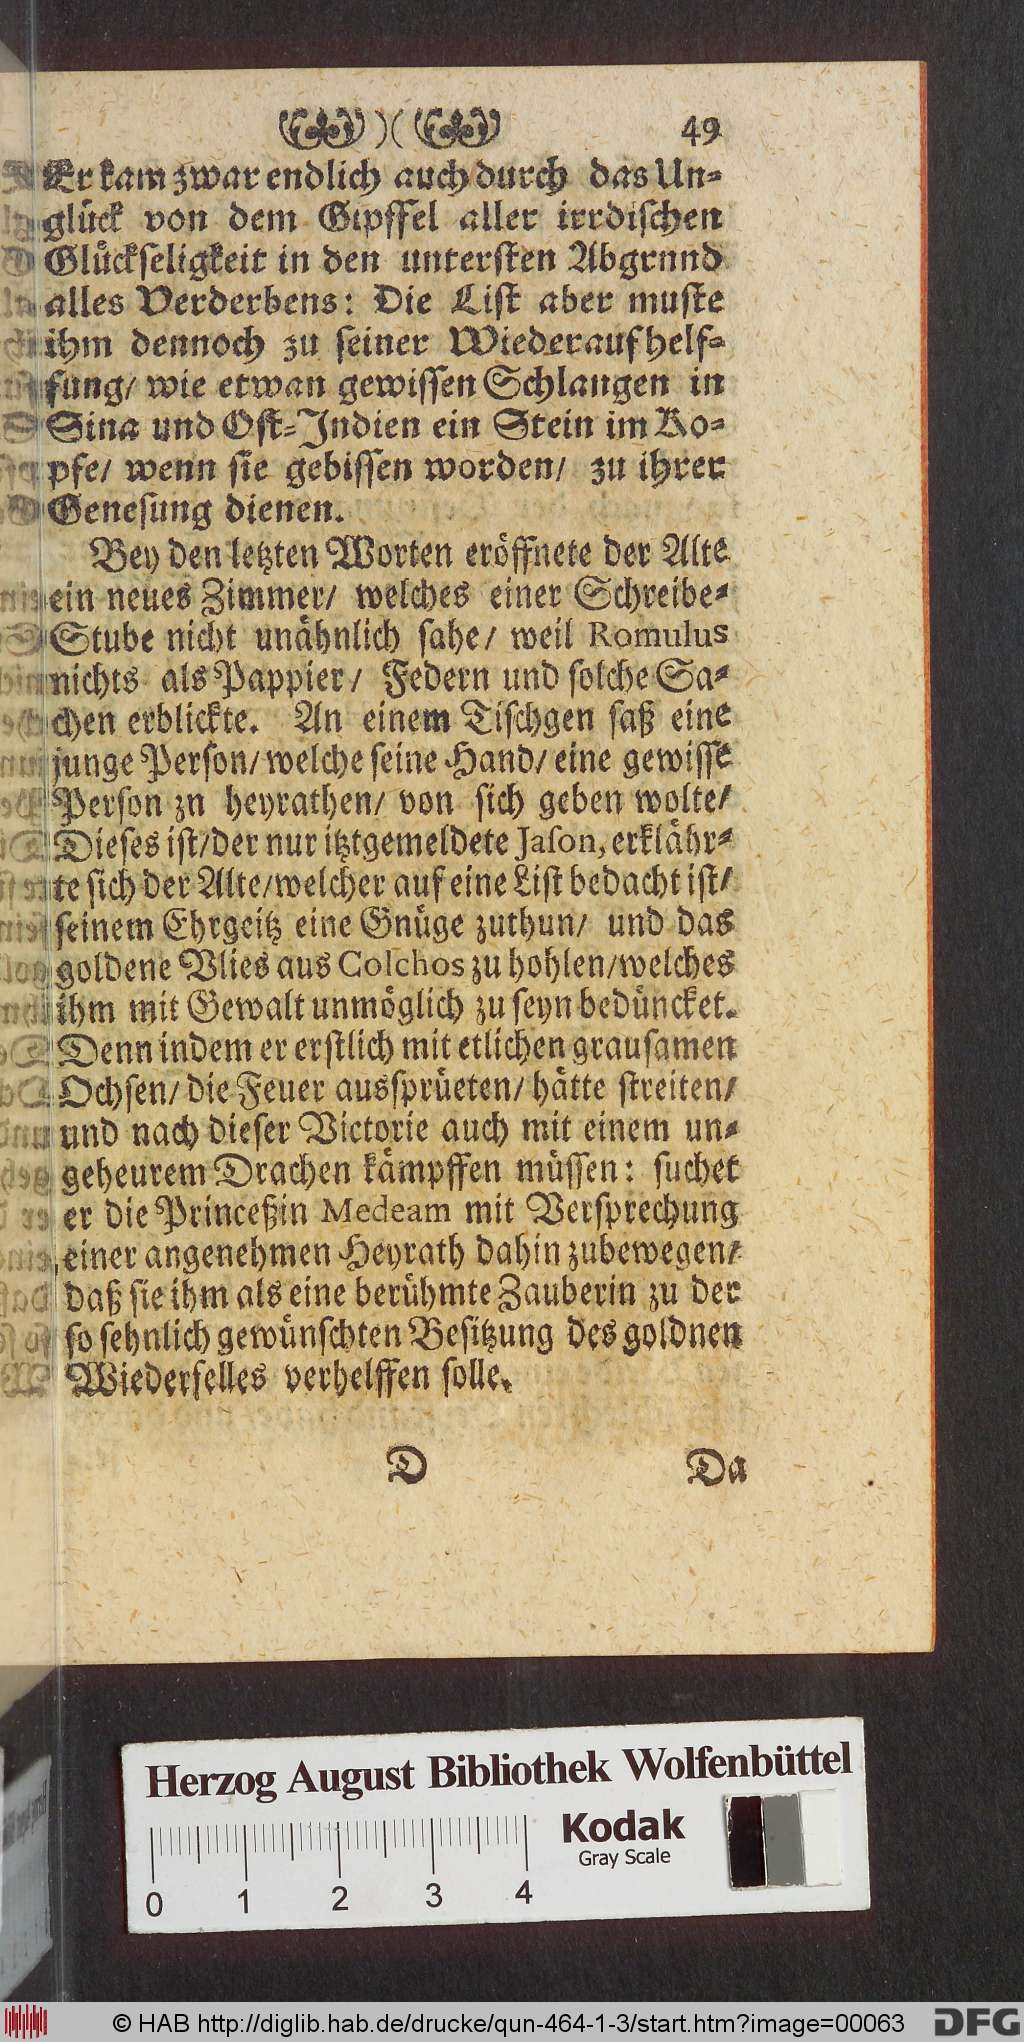 )( 49
Er kam zwar endlich auch durch das Un-
glück von dem Gipffel aller irrdischen
Glückseligkeit in den untersten Abgrnnd
alles Verderbens: Die List aber muste
ihm dennoch zu seiner Wiederaufhelf-
fung/ wie etwan gewissen Schlangen in
Sina und Ost-Indien ein Stein im Ko-
pfe/ wenn sie gebissen worden/ zu ihrer
Genesung dienen.
Bey den letzten Worten eröffnete der Alte
ein neues Zimmer/ welches einer Schreibe-
Stube nicht unähnlich sahe/ weil Romulus
nichts als Pappier/ Federn und solche Sa-
chen erblickte. An einem Tischgen saß eine
junge Person/ welche seine Hand/ eine gewisse
Person zn heyrathen/ von sich geben wolte/
Dieses ist/ der nur itztgemeldete Jason, erklähr-
te sich der Alte/ welcher auf eine List bedacht ist/
seinem Ehrgeitz eine Gnüge zuthun/ und das
goldene Vlies aus Colchos zu hohlen/ welches
ihm mit Gewalt unmöglich zu seyn bedüncket.
Denn indem er erstlich mit etlichen grausamen
Ochsen/ die Feuer aussprüeten/ hätte streiten/
und nach dieser Victorie auch mit einem un-
geheurem Drachen kämpffen müssen: suchet
er die Princeßin Medeam mit Versprechung
einer angenehmen Heyrath dahin zubewegen/
daß sie ihm als eine berühmte Zauberin zu der
so sehnlich gewünschten Besitzung des goldnen
Wiederfelles verhelffen solle.
D Da
Herzog August Bibliothek Wolfenbüttel
Kodak
Gray Scale
0 1 2 3 4
© HAB http://diglib.hab.de/drucke/qun-464-1-3/start.htm?image=00063 DFG